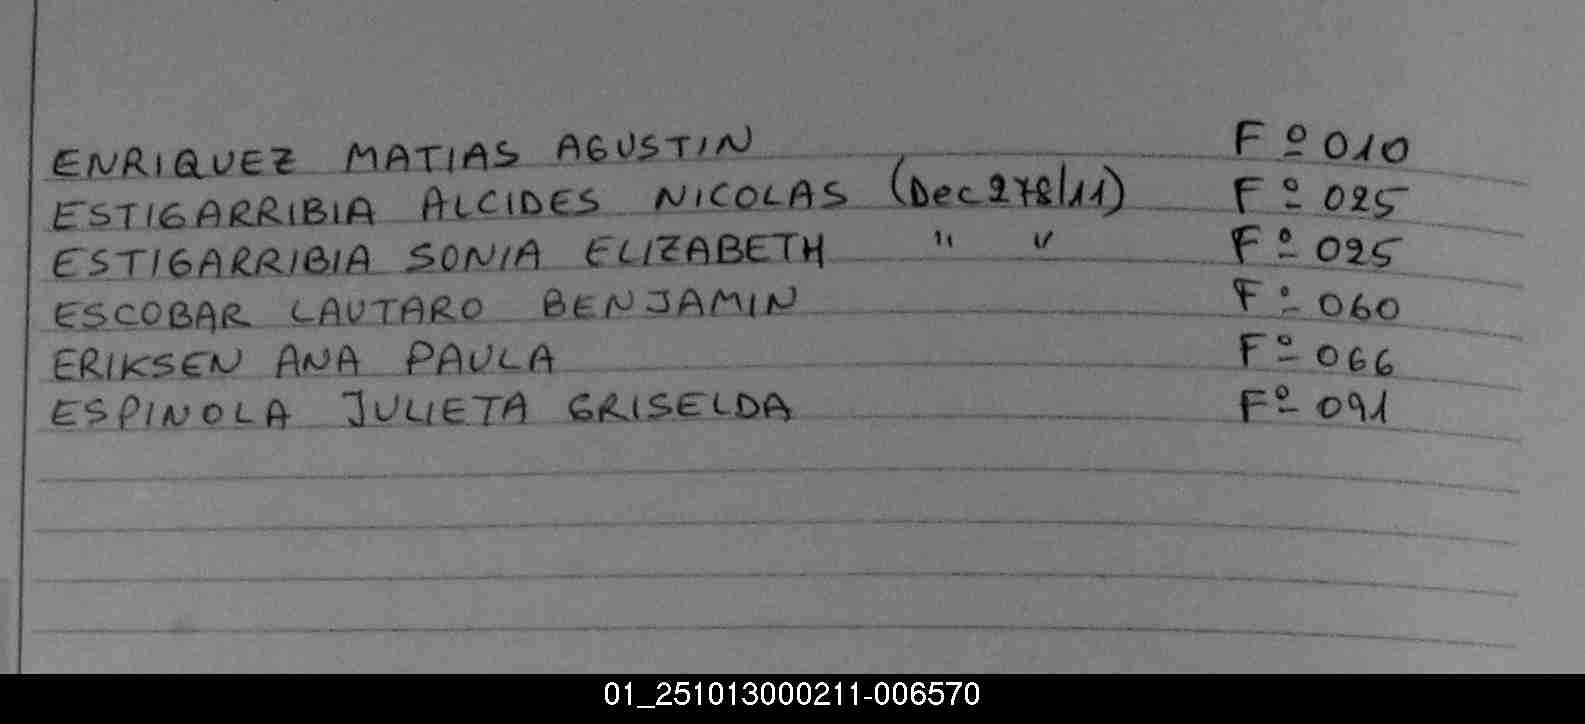 ENRIQUEZ MATIAS AGUSTIN Fº 010
ESTIGARRIBIA ALCIDES NICOLAS (Dec 278/11) Fº 025
ESTIGARRIBIA SONIA ELIZABETH " " Fº 025
ESCOBAR LAUTARO BENJAMIN Fº 060
ERIKSEN ANA PAULA Fº 066
ESPINOLA JULIETA GRISELDA Fº 091
01_251013000211-006570